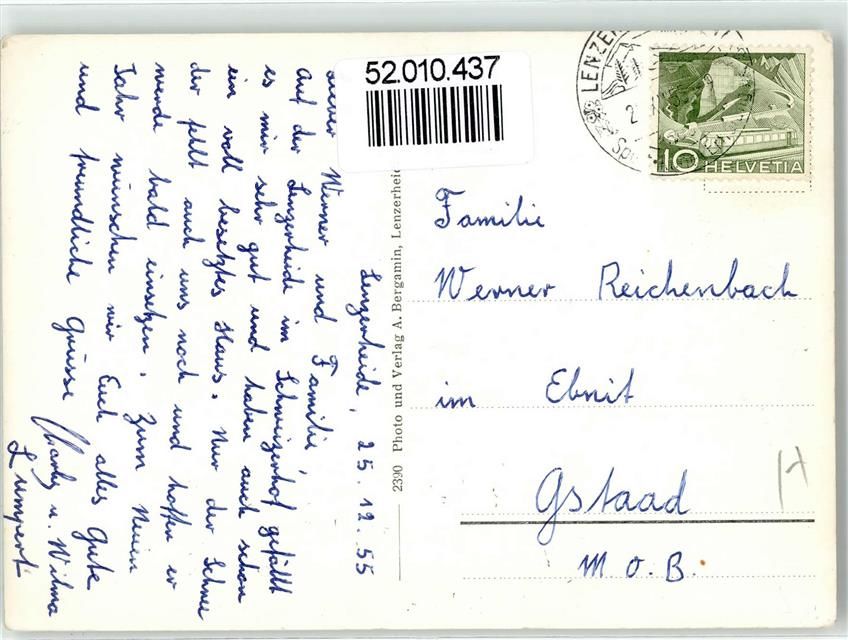 52.010.437
LENZER
HELVETIA
10
Lenzerheide, 25.12.55
Werner und Familie,
Auf der Lenzerheide im Schweizerhof gefällt
es mir sehr gut und haben auch schon
ein voll besetztes Haus. Nur der Schnee
der fehlt auch uns noch und hoffen er
werde bald einsetzen. Zum Neuen
Jahr wünschen wir Euch alles Gute
und freundliche Grüsse Charly u. Wilma
Lumpert
2390 Photo und Verlag A. Bergamin, Lenzerheide
Familie
Werner Reichenbach
im Ebnit
Gstaad
M.O.B.